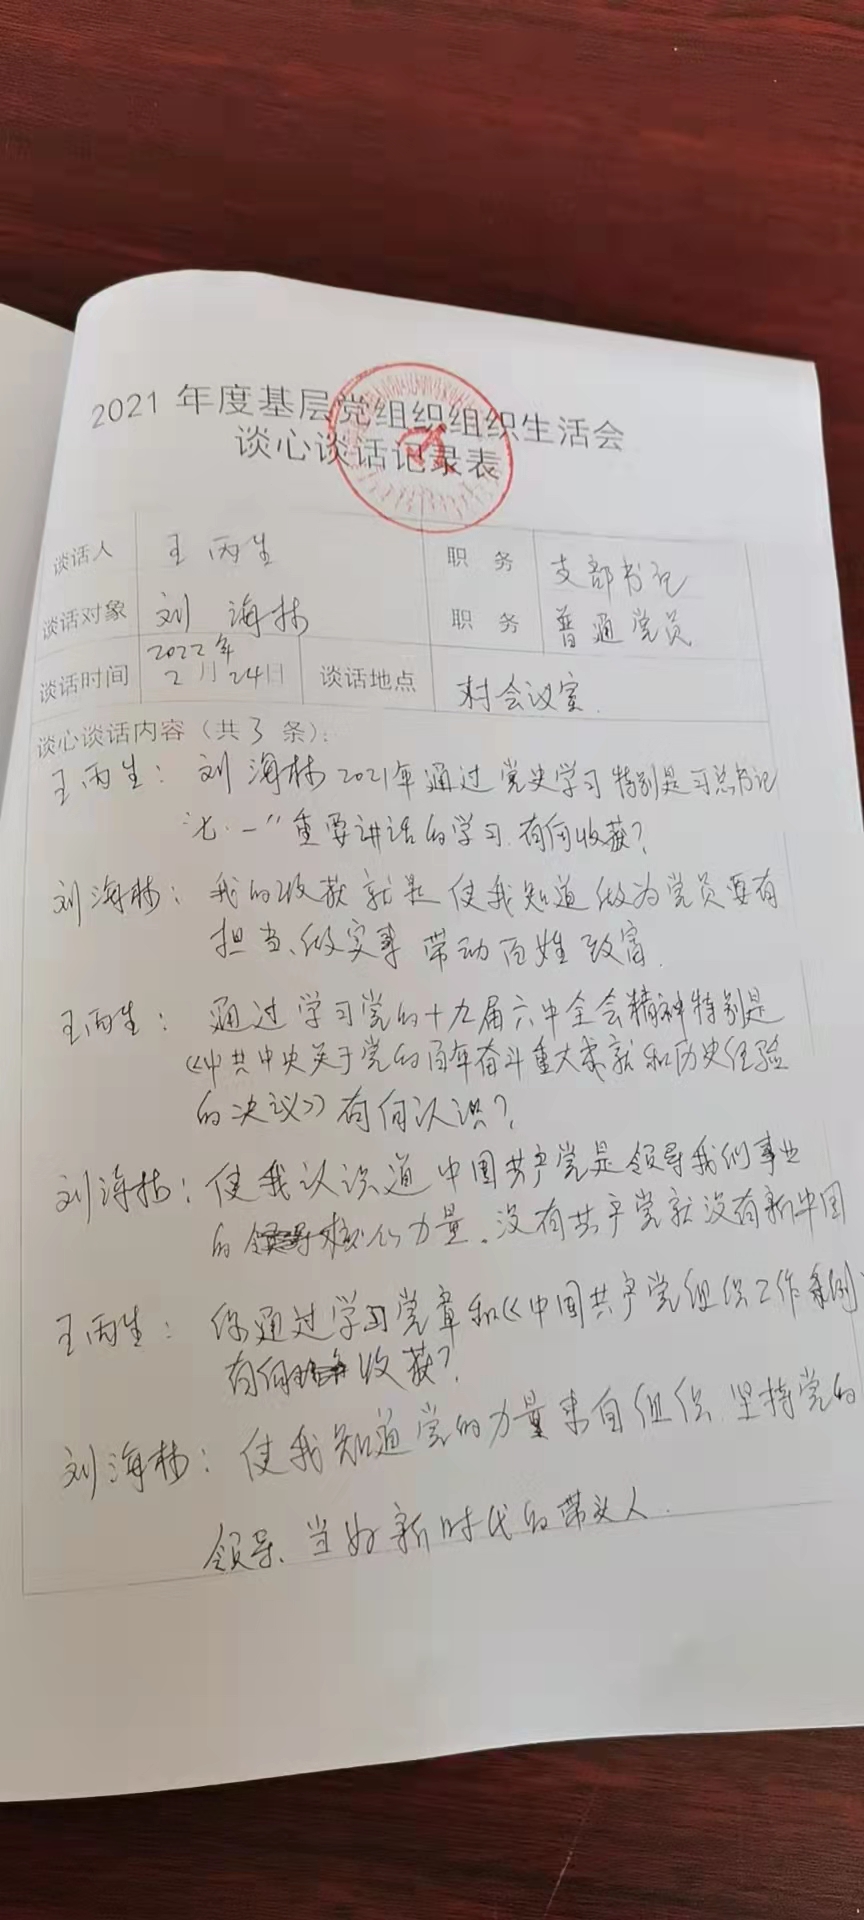 2021 年度基层党组织组织生活会
谈心谈话记录表
谈话人 王丙生 职 务 支部书记
谈话对象 刘海林 职 务 普通党员
谈话时间 2022年2月24日 谈话地点 村会议室.
谈心谈话内容（共3条）：
王丙生：刘海林2021年通过党史学习特别是习总书记
“七·一”重要讲话的学习.有何收获？
刘海林：我的收获就是使我知道做为党员要有
担当、做实事 带动百姓致富.
王丙生：通过学习党的十九届六中全会精神特别是
《中共中央关于党的百年奋斗重大成就和历史经验
的决议》有何认识？
刘海林：使我认识道中国共产党是领导我们事业
的核心力量.没有共产党就没有新中国
王丙生：你通过学习党章和《中国共产党组织工作条例》
有何收获？
刘海林：使我知道党的力量来自组织.坚持党的
领导、当好新时代的带头人.